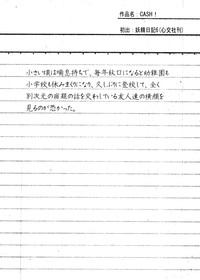 作品名：CASH！
初出：妖精日記6(心交社刊)
小さい頃は喘息持ちで、毎年秋口になると幼稚園も
小学校も休みまくりになり、久しぶりに登校して、全く
別次元の面題の話を交わしている友人達の横顔を
見るのが恐かった。